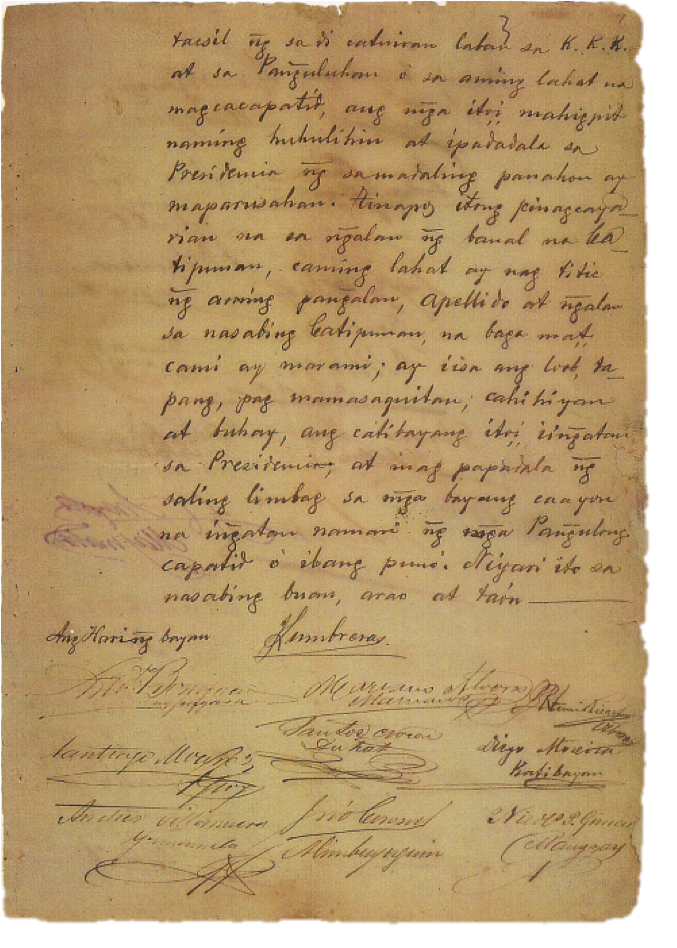 3
tacsil ñg sa di catuiran laban sa K. K. K.
at sa Pan̄guluhan ó sa aming lahat na
magcacapatid, ang mḡa itoi, mahigpit
naming huhulihin at ipadadala sa
Presidencia n̄g samadaling panahon ay
maparusahan. Tinapos itong pinagcaya_
rian na sa n̄galan n̄g banal na Ca_
tipunan, caming lahat ay nag titic
n̄g aming pan̄galan, apellido at n̄galan
sa nasabing Catipunan, na baga mat,
cami ay marami; ay iisa ang loob, ta_
pang, pag mamasaquitan, cahihiyan
at buhay, ang catibayang itoi, iin̄gatan
sa Presidencia, at mag papadala n̄g
saling limbag sa mḡa bayang caayon
na in̄gatan naman n̄g mḡa Pan̄gulong
capatid ó ibang punó. Niyari ito sa
nasabing buan, arao at taón
Ang Hari n̄g bayan Kumbreras.
Mariano Alvarez
Santos Nocon
Santiago Alvarez Diego Moxica
Katibayan
Andres Villanueva